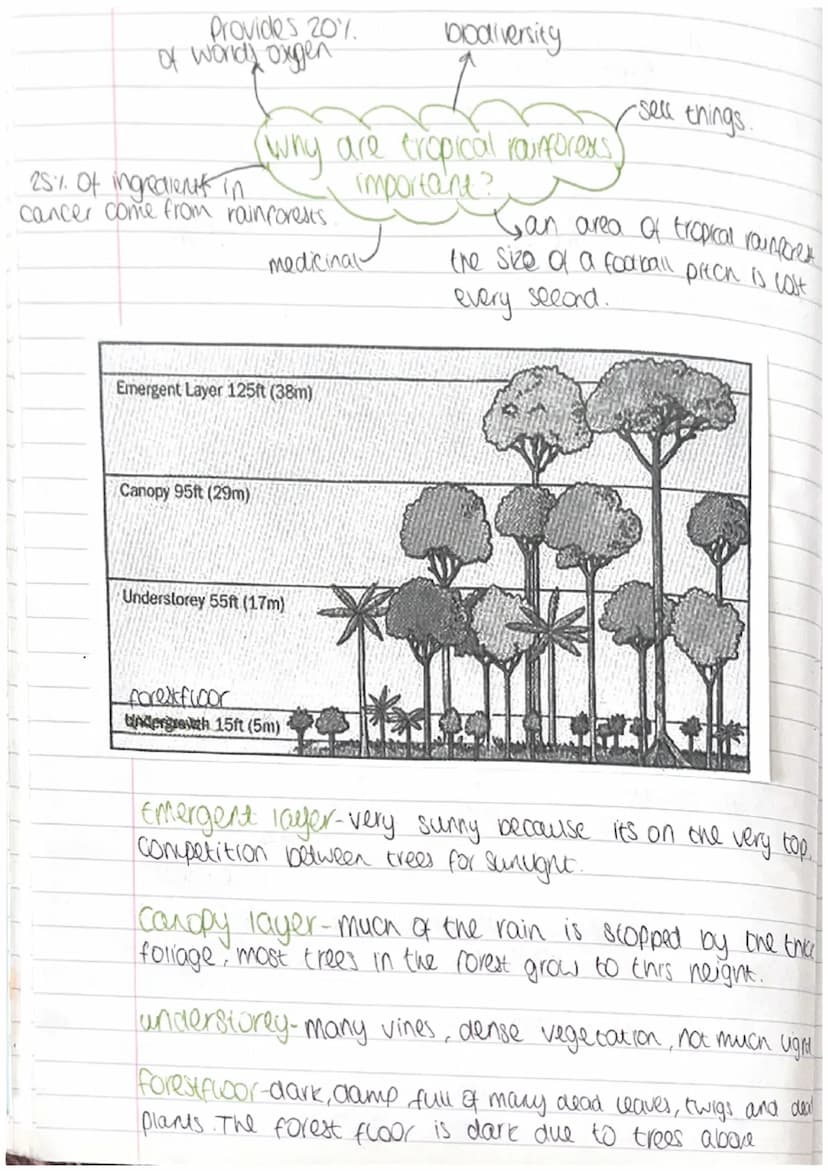 Provides 20%
of worlds oxygen
biodiversity
sell things.
Why are tropical rainforests
important?
25% of ingredients in
cancer come from rainforests.
medicinal
an area of tropical rainforest
the size of a football pitch is lost
every second.
Emergent Layer 125ft (38m)
Canopy 95ft (29m)
Understorey 55ft (17m)
forestfloor
Undergrowth 15ft (5m)
Emergent layer-very sunny because its on the very top.
competition between trees for sunlight.
Canopy layer-much of the rain is stopped by the thick
foliage, most trees in the forest grow to this height.
understorey-many vines, dense vegetation, not much light
forestfloor-dark, damp full of many dead leaves, twigs and dead
plants. The forest floor is dark due to trees above